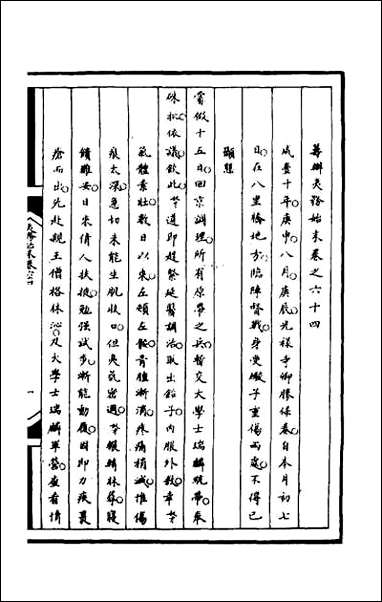 籌辦夷務始末卷之六十四
咸豐十年庚申八月庚辰光祿寺卿勝保奏自本月初七
日在八里橋地方臨陣督戰身受鎗子重傷兩處不得已
顯懇
賞假十五日回京調理所有原帶之兵暫交大學士瑞麟統帶奉
硃批依議欽此等遵即趕緊延醫調治取出鉛子內服外敷幸等
氣體素壯數日以來左頰左骽骨腫漸消疼痛稍減惟傷
痕太深急切未能生肌收口但夷氛密邇等輾轉牀蓐寢
饋難安日來倩人扶掖勉強試步漸能動履因即力疾裹
瘡而出先赴親王僧格林沁及大學士瑞麟軍營查看情